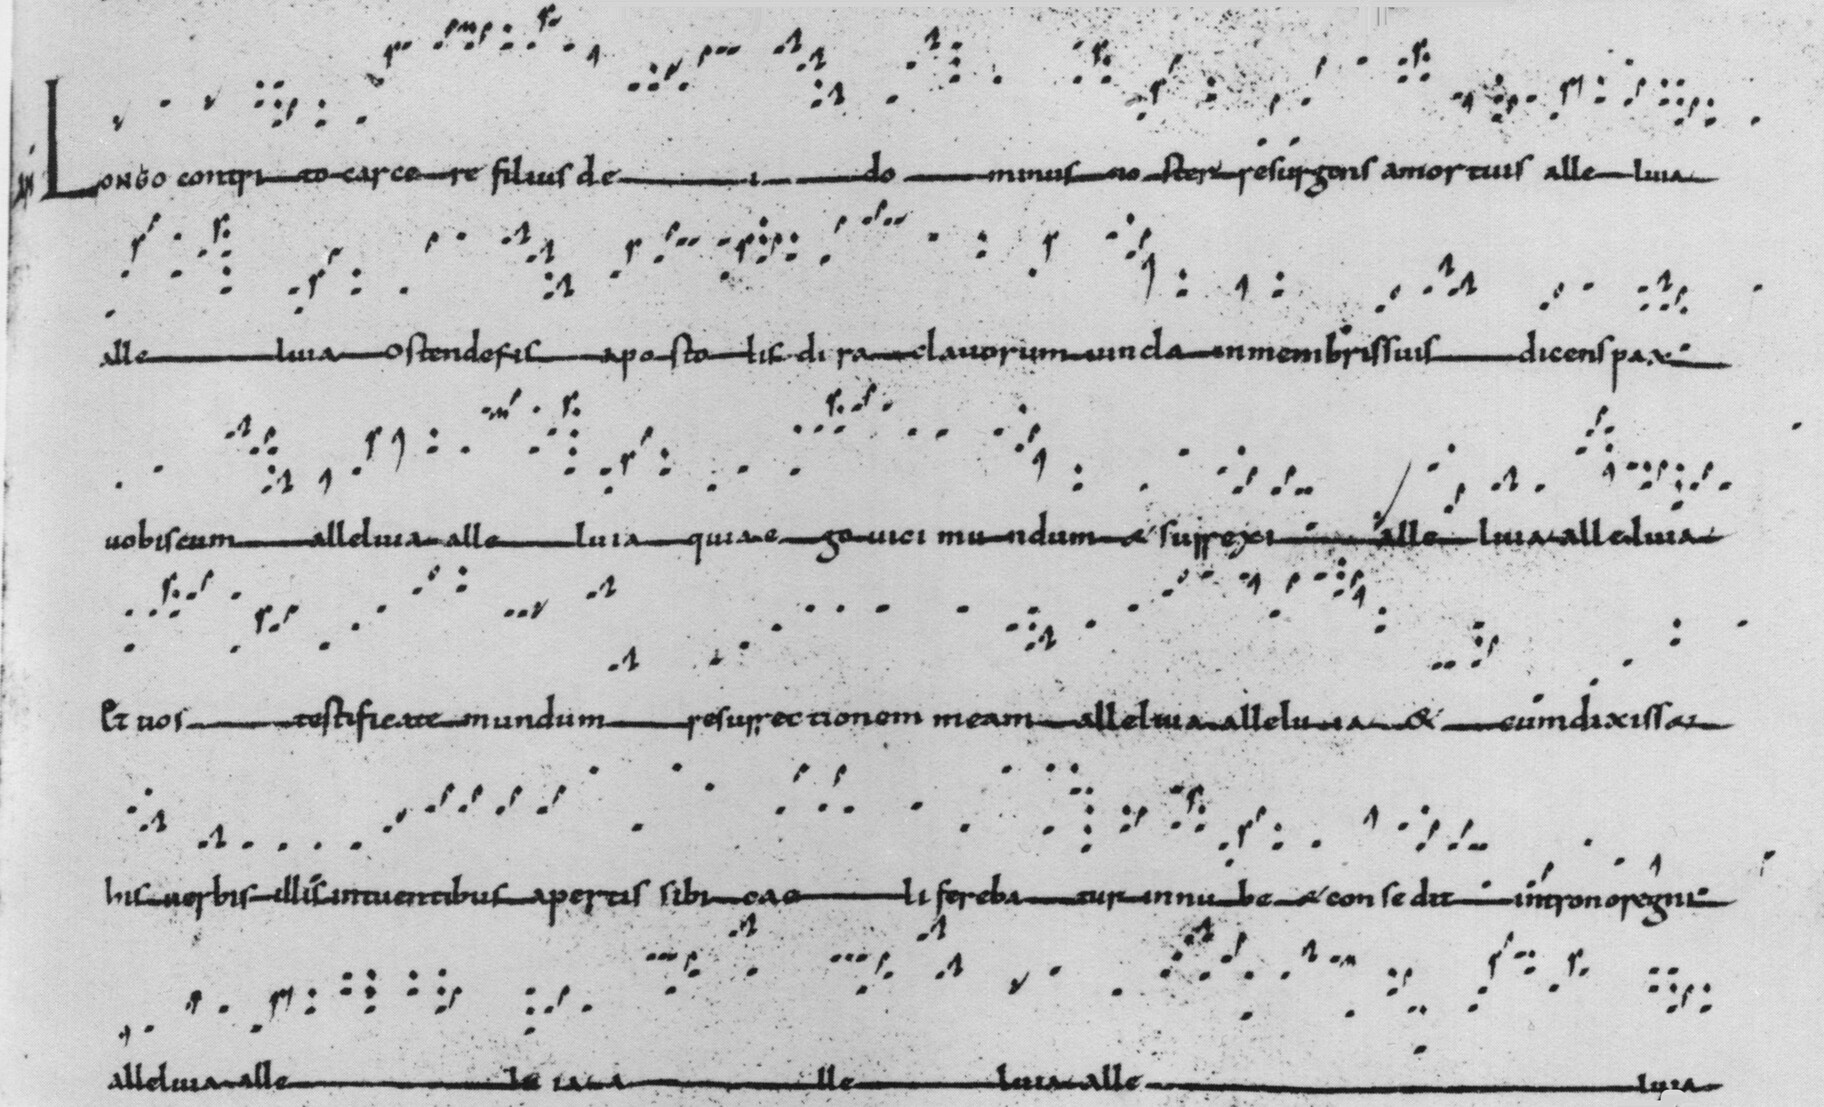 Longo contrito carcere filius dei dominus noster resurgens amortuis alleluia
alleluia ostendesis apostolis dira clavorum uincla inmembrissuis dicens pax
uobiscum alleluia alleluia quia ego uici mundum & surrexi alleluia alleluia
Et uos testificate mundum resurrectionem meam alleluia alleluia & cumdixiss&
his uerbis illis intuentibus apertis sibi caeli ferebatur innube & consedit introno regni
alleluia alleluia alleluia alleluia